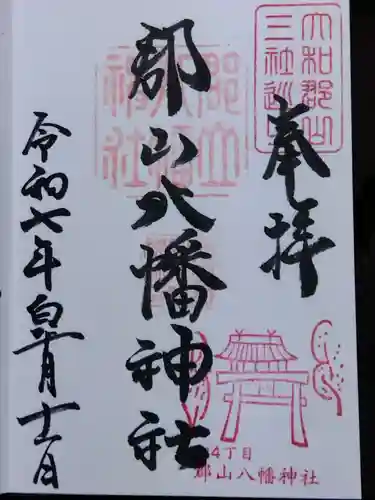 大和郡山
三社巡り
奉拝
郡山八幡神社
郡山八幡神社
令和七年
十一日
4丁目
郡山八幡神社